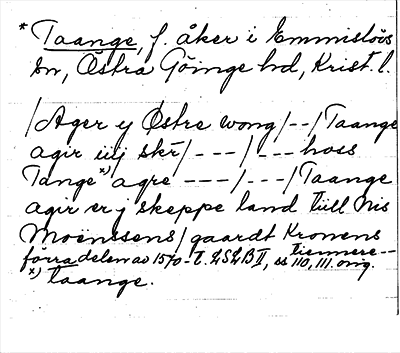 * Taange, f. åker i Emmislövs
sn, Östra Göinge hd, Krist. l.
/Ager y Østre wong/--/Taange
agir iiij skr/---/---hoss
Tange *) agre ---/---/Taange
agir er j skeppe land tüll Nis
Moenssens/gaardt Kronens
förra delen av 1570-t. LSLB II, ss 110, 111. orig. tiennere--
*) taange.